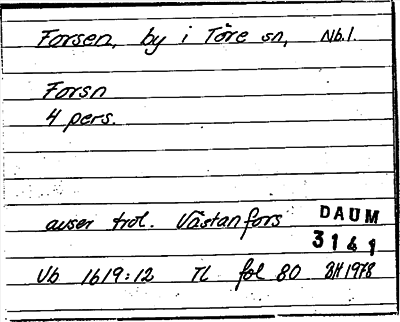 Forsen, by i Töre sn, Nb.1.
Forsn
4 pers.
avser trol. Västanfors
DAUM
3141
Vb 1619:12 TL fol 80 BH 1978